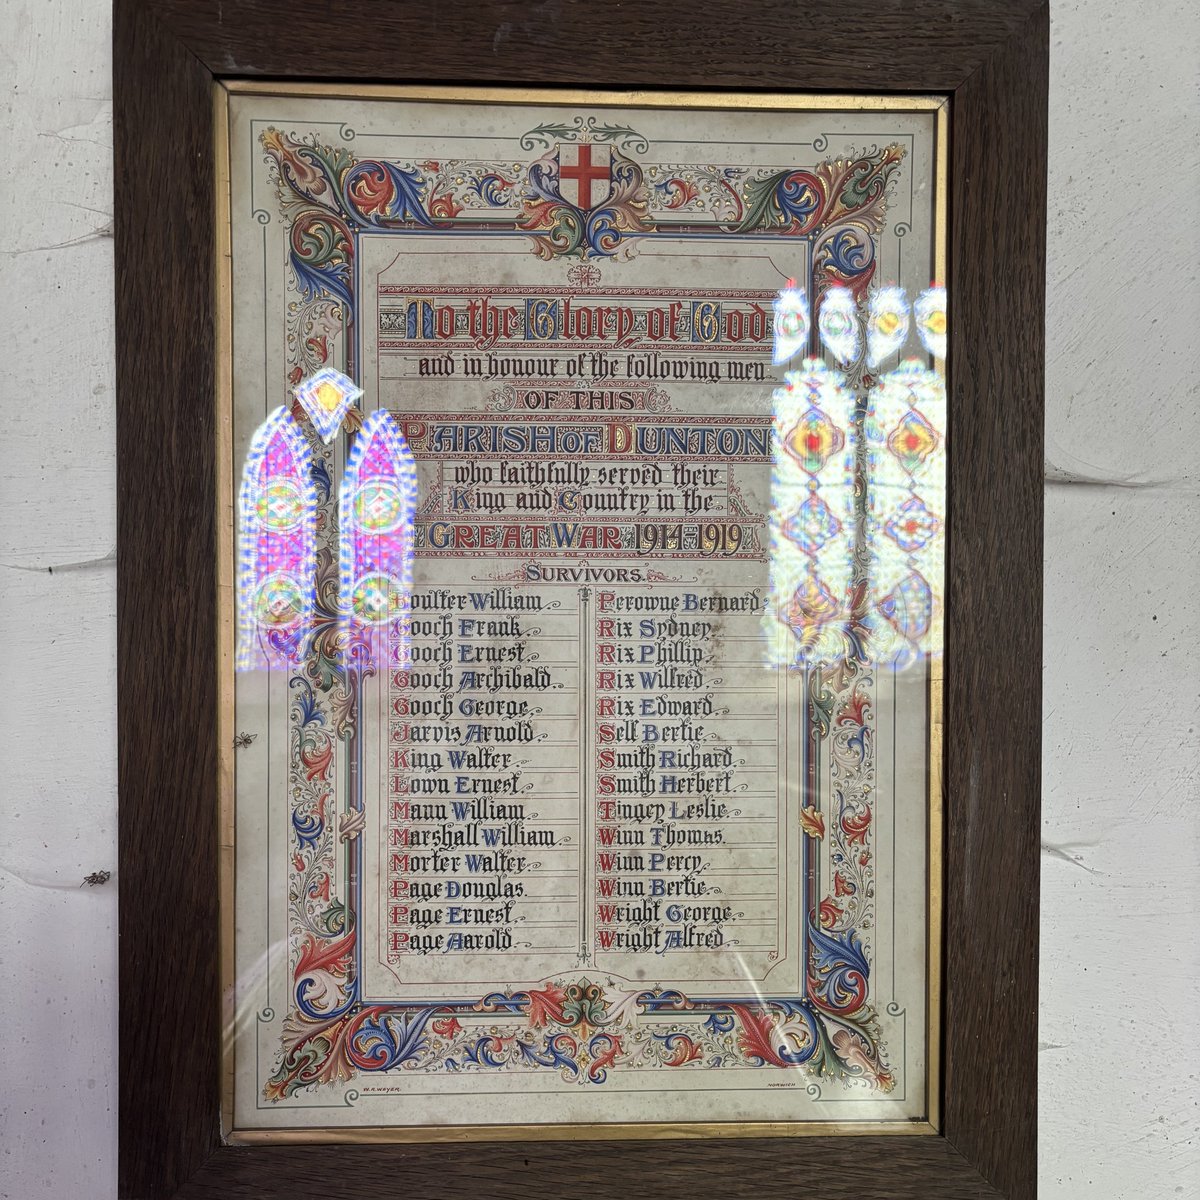 To the Glory of God
and in honour of the following men
OF THIS
PARISH OF DUNTON
who faithfully served their
King and Country in the
GREAT WAR 1914-1919
SURVIVORS.
Boulter William.
Gooch Frank.
Gooch Ernest.
Gooch Archibald.
Gooch George.
Jarvis Arnold.
King Walter.
Lown Ernest.
Mann William.
Marshall William.
Morter Walter.
Page Douglas.
Page Ernest.
Page Aarold.
Perowne Bernard.
Rix Sydney.
Rix Phillip.
Rix Wilfred.
Rix Edward.
Self Bertie.
Smith Richard.
Smith Herbert.
Tingey Leslie.
Winn Thomas.
Winn Percy.
Winn Bertie.
Wright George.
Wright Alfred.
W.R. WEYER.
NORWICH